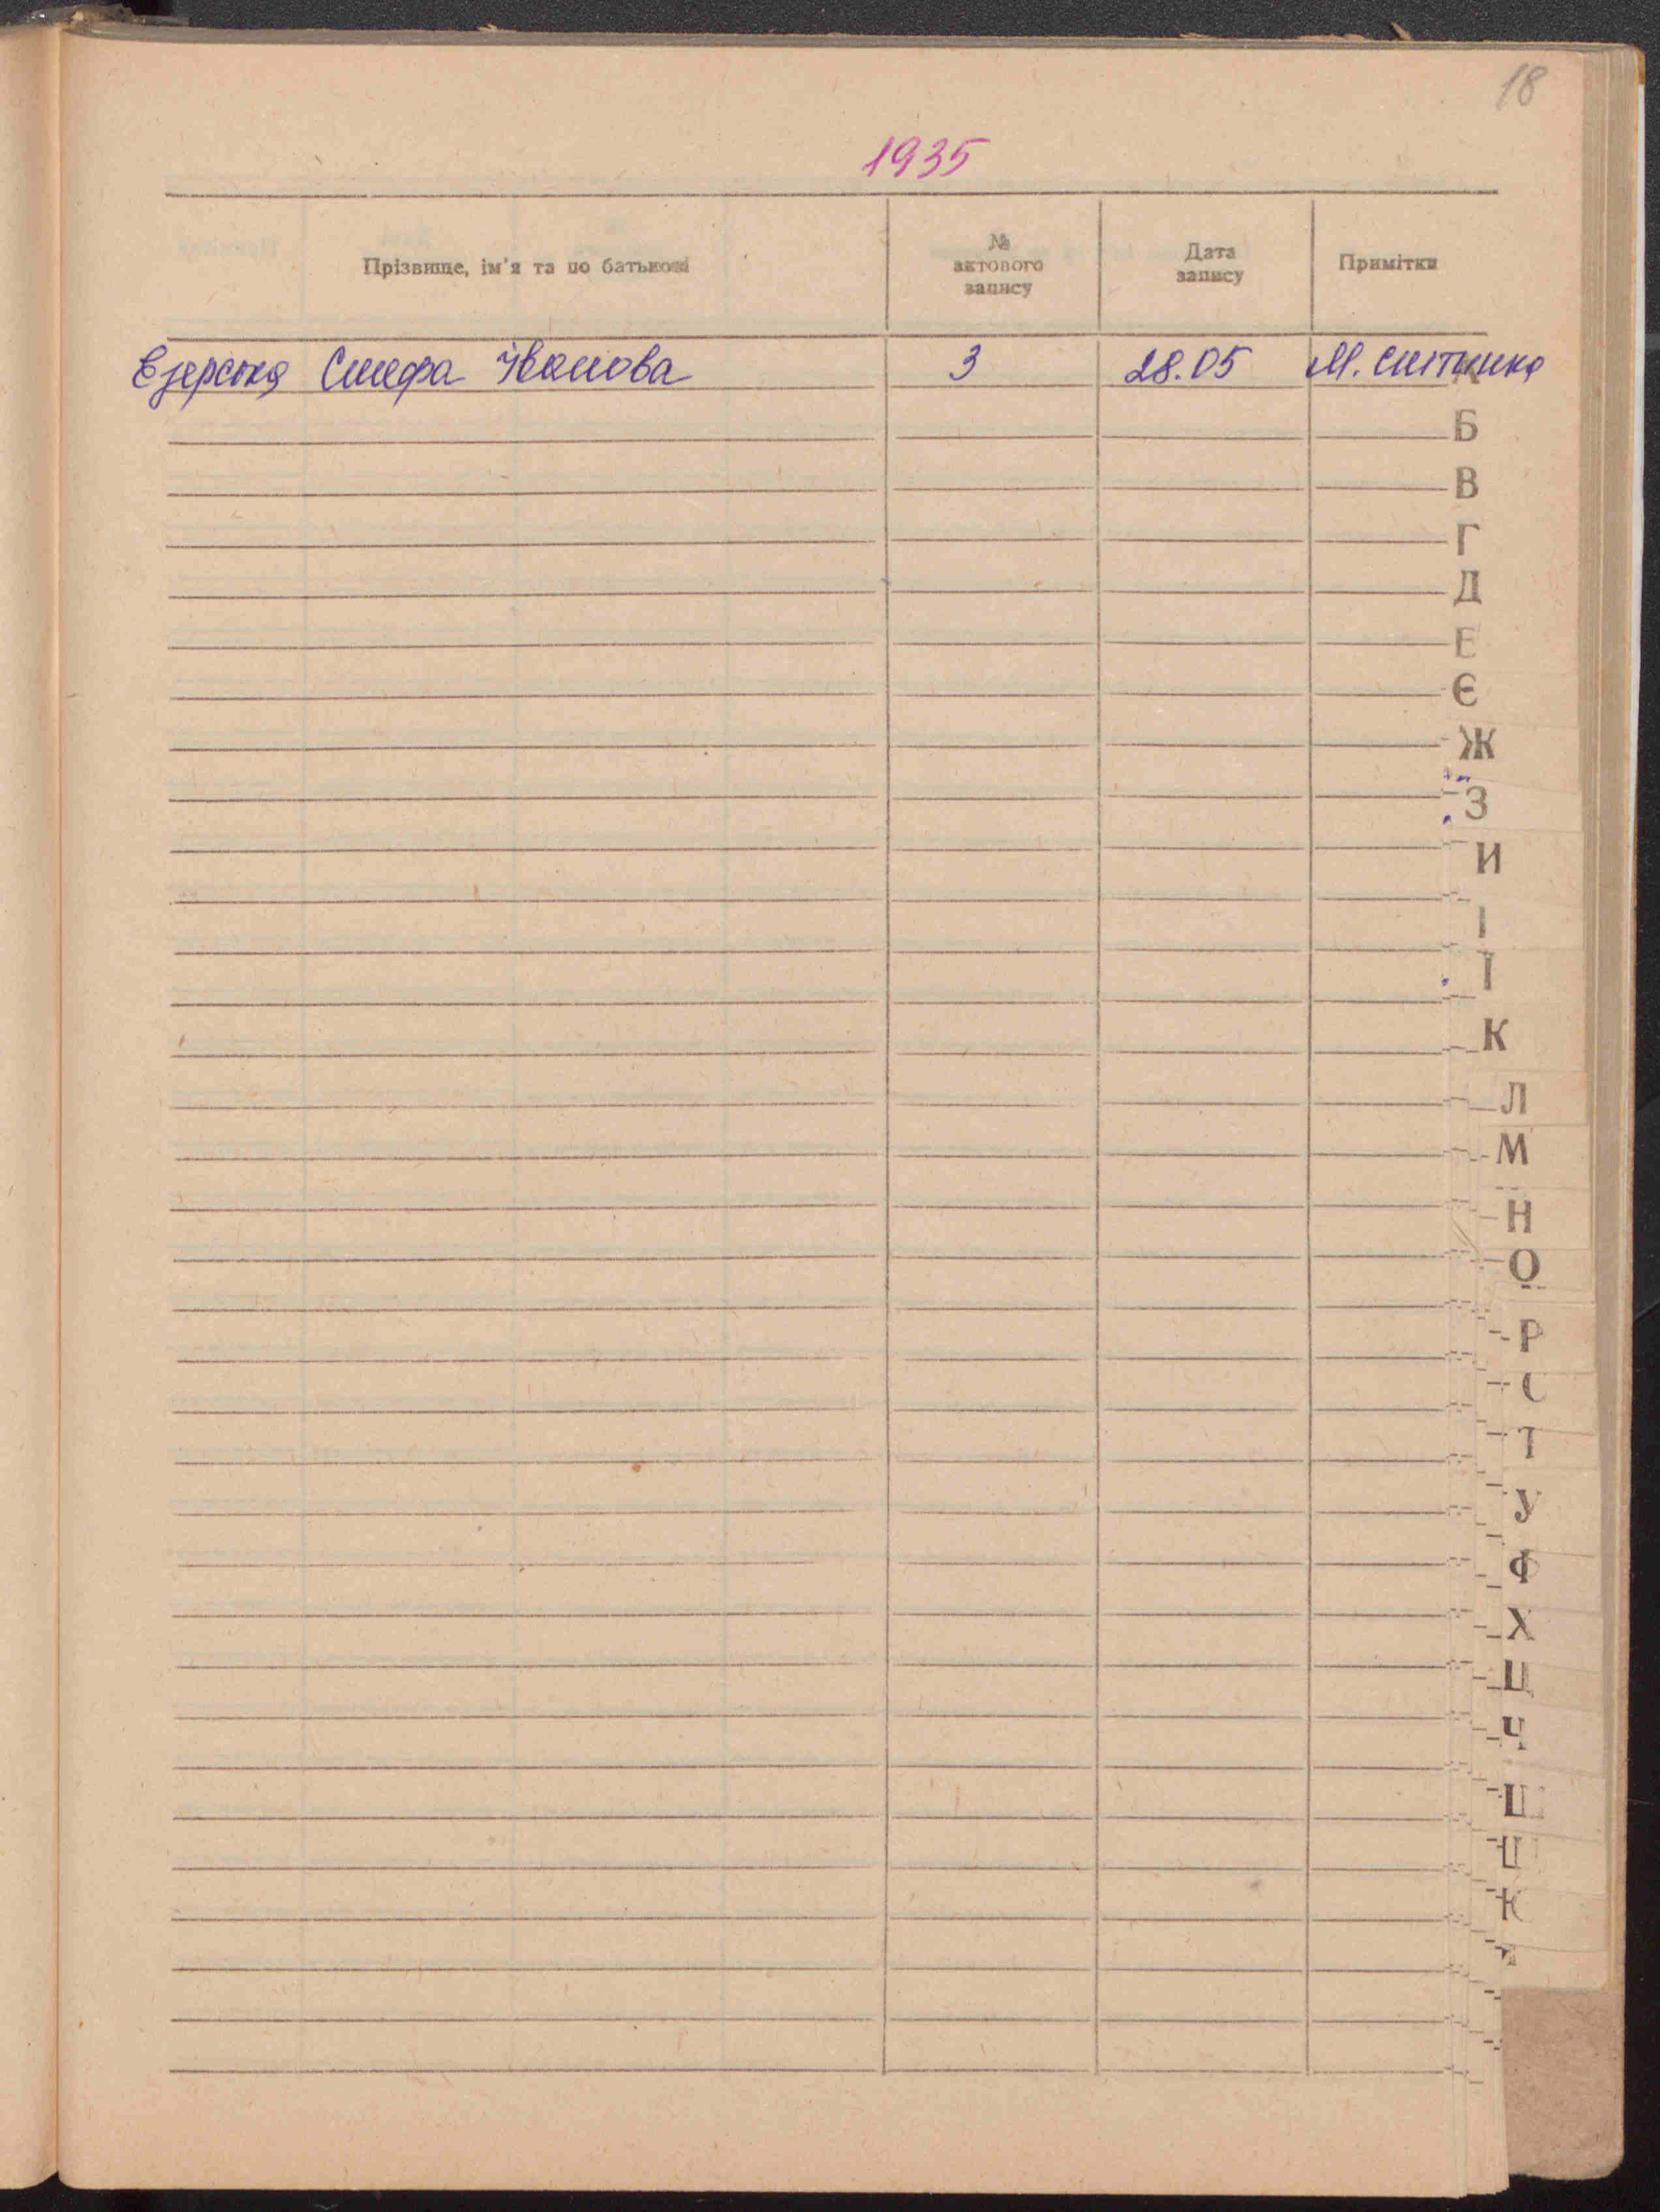 18
1935
Прізвище, ім'я та по батькові
№ актового запису
Дата запису
Примітки
Іванова 3 28.05 М.
Б
В
Г
Д
Е
Є
Ж
З
И
І
Ї
К
Л
М
Н
О
Р
С
Т
У
Ф
Х
Ц
Ч
Ш